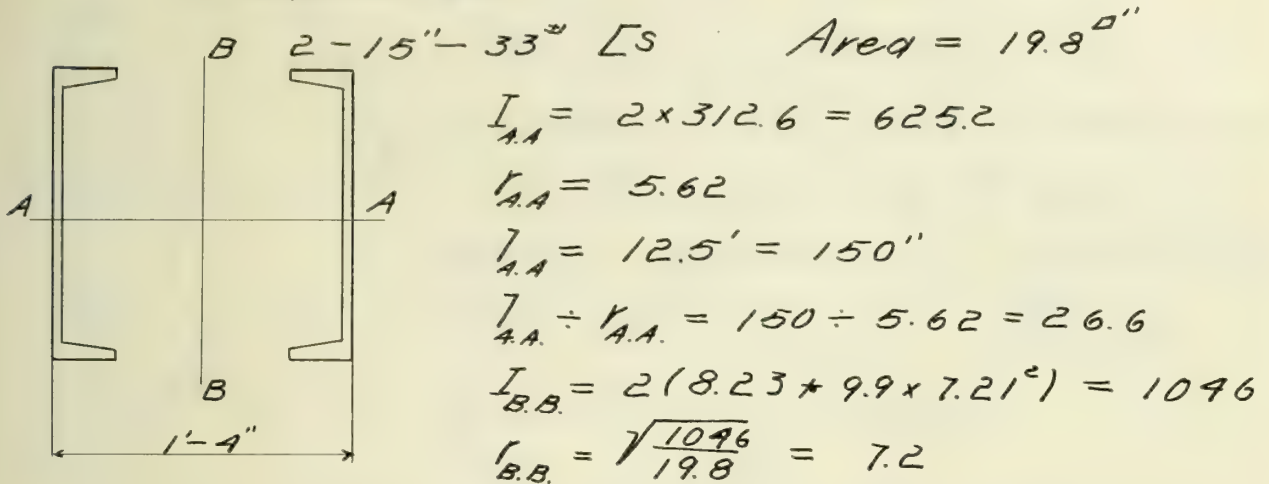 B 2-15"-33# [s Area = 19.8□"
I_A.A = 2×312.6 = 625.2
r_A.A = 5.62
A A
l_A.A = 12.5' = 150"
l_A.A. ÷ r_A.A. = 150 ÷ 5.62 = 26.6
I_B.B. = 2(8.23 + 9.9 × 7.21²) = 1046
B
1'-4"
r_B.B. = √1046/19.8 = 7.2